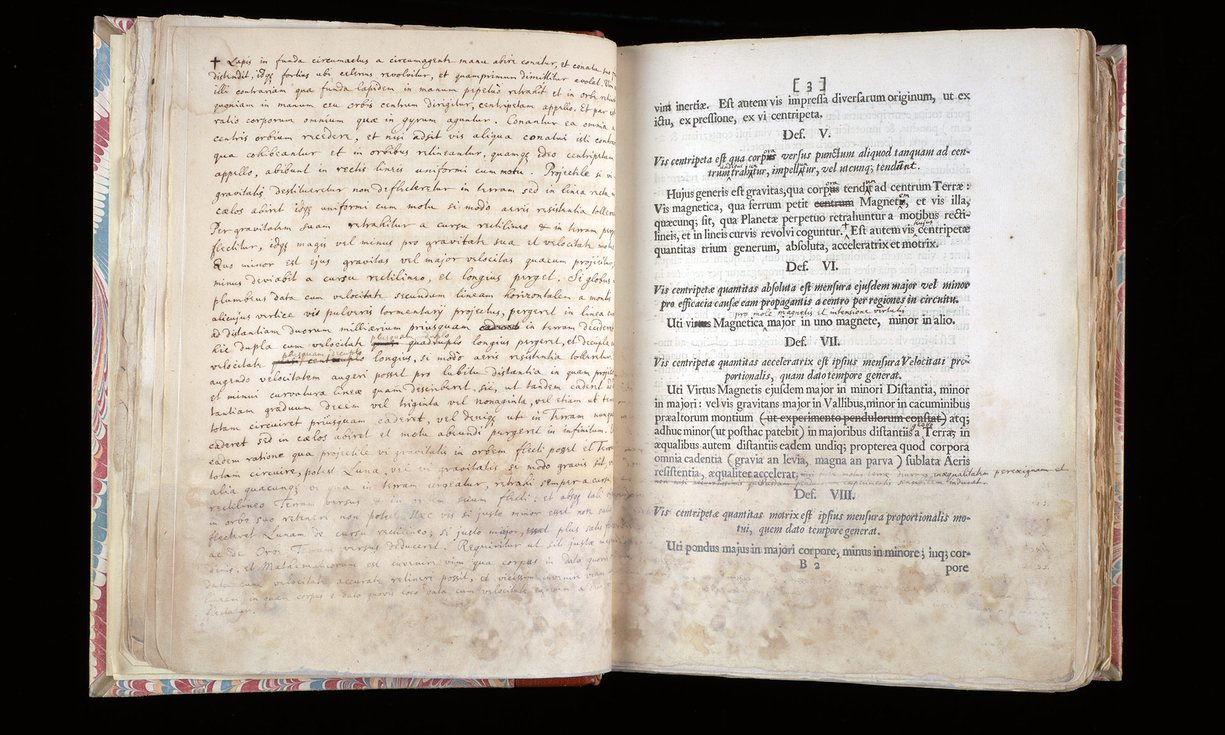 ✝ Lapis in funda circumactus a circumagente manu abire conatur, et conatu suo
distendit, idq; fortius ubi celerius revolvitur, et quamprimum dimittitur evolat. Vim
illi contrariam qua funda lapidem in manum perpetuo retrahit et in orbe
quoniam in manum ceu orbis centrum dirigitur, centripetam appello. Et par
ratio corporum omnium quæ in gyrum aguntur. Conantur ea omnia a
centris orbium recedere, et nisi adsit vis aliqua conatui isti
qua cohibeantur et in orbibus retineantur, quamq; ideo centripetam
appello, abibunt in rectis lineis uniformi cum motu. Projectile si
gravitatis destitueretur non deflecteretur in terram sed in linea recta
cælos abiret idq; uniformi cum motu si modo aeris resistentia
Per gravitatem suam retrahitur a cursu rectilineo & in terram
flectitur, idq; magis vel minus pro gravitate sua et velocitate
Quo minor est ejus gravitas vel major velocitas quacum projicitur
minus deviabit a cursu rectilineo, et longius perget. Si globus
plumbeus data cum velocitate secundum lineam horizontalem a montis
alicujus vertice vi pulveris tormentarij projectus, pergeret in linea
ad distantiam duorum milliarium priusquam in terram
hic dupla cum velocitate plusquam duplo longius pergeret, et decupla
velocitate plusquam decuplo longius, si modo aeris resistentia tolleretur.
augendo velocitatem augeri posset pro lubitu distantia in quam
et minui curvatura lineæ quam describeret, sic, ut tandem caderet
tantiam graduum decem vel triginta vel nonaginta, vel etiam ut
totam circuiret priusquam caderet, vel deniq; ut in Terram
caderet sed in cælos abiret et motu abeundi pergeret in infinitum.
eadem ratione qua projectile vi gravitatis in orbem flecti posset et Terram
totam circuire, potest Luna, vel vi gravitatis si modo gravis sit, vel
alia quacunq; in terram urgeatur, retrahi semper a cursu
rectilineo Terram versus & in orbem suum flecti: et absq; tali
in orbe suo retineri non potest. Hæc vis si justo minor esset non satis
flecteret Lunam de cursu rectilineo; si justo major, plus satis
ac de Orbe Terram versus deduceret. Requiritur ut sit justæ
et Mathematicorum est invenire vim qua corpus in dato quovis
cum velocitate accurate retineri possit, et vicissim invenire viam
in quam corpus e dato quovis loco data cum velocitate
[ 3 ]
vim inertiæ. Est autem vis impressa diversarum originum, ut ex
ictu, ex pressione, ex vi centripeta.
Def. V.
Vis centripeta est qua corpora versus punctum aliquod tanquam ad cen-
trum trahuntur, impelluntur, vel utcunq; tendunt.
Hujus generis est gravitas, qua corpora tendunt ad centrum Terræ:
Vis magnetica, qua ferrum petit centrum Magnetem, et vis illa,
quæcunq; sit, qua Planetæ perpetuo retrahuntur a motibus recti-
lineis, et in lineis curvis revolvi coguntur. ✝ Est autem vis centripetæ
quantitas trium generum, absoluta, acceleratrix et motrix.
Def. VI.
Vis centripetæ quantitas absoluta est mensura ejusdem major vel minor
pro efficacia causæ eam propagantis a centro per regiones in circuitu.
pro mole magnetis et intensione virtutis
Uti virtus Magnetica major in uno magnete, minor in alio.
Def. VII.
Vis centripetæ quantitas acceleratrix est ipsius mensura Velocitati pro-
portionalis, quam dato tempore generat.
Uti Virtus Magnetis ejusdem major in minori Distantia, minor
in majori: vel vis gravitans major in Vallibus, minor in cacuminibus
præaltorum montium (ut experimento pendulorum constat) atq;
adhuc minor (ut posthac patebit) in majoribus distantiis a Terra; in
æqualibus autem distantiis eadem undiq; propterea quod corpora
omnia cadentia (gravia an levia, magna an parva) sublata Aeris
resistentia, æqualiter accelerat,
Def. VIII.
Vis centripetæ quantitas motrix est ipsius mensura proportionalis mo-
tui, quem dato tempore generat.
Uti pondus majus in majori corpore, minus in minore; inq; cor-
B 2 pore